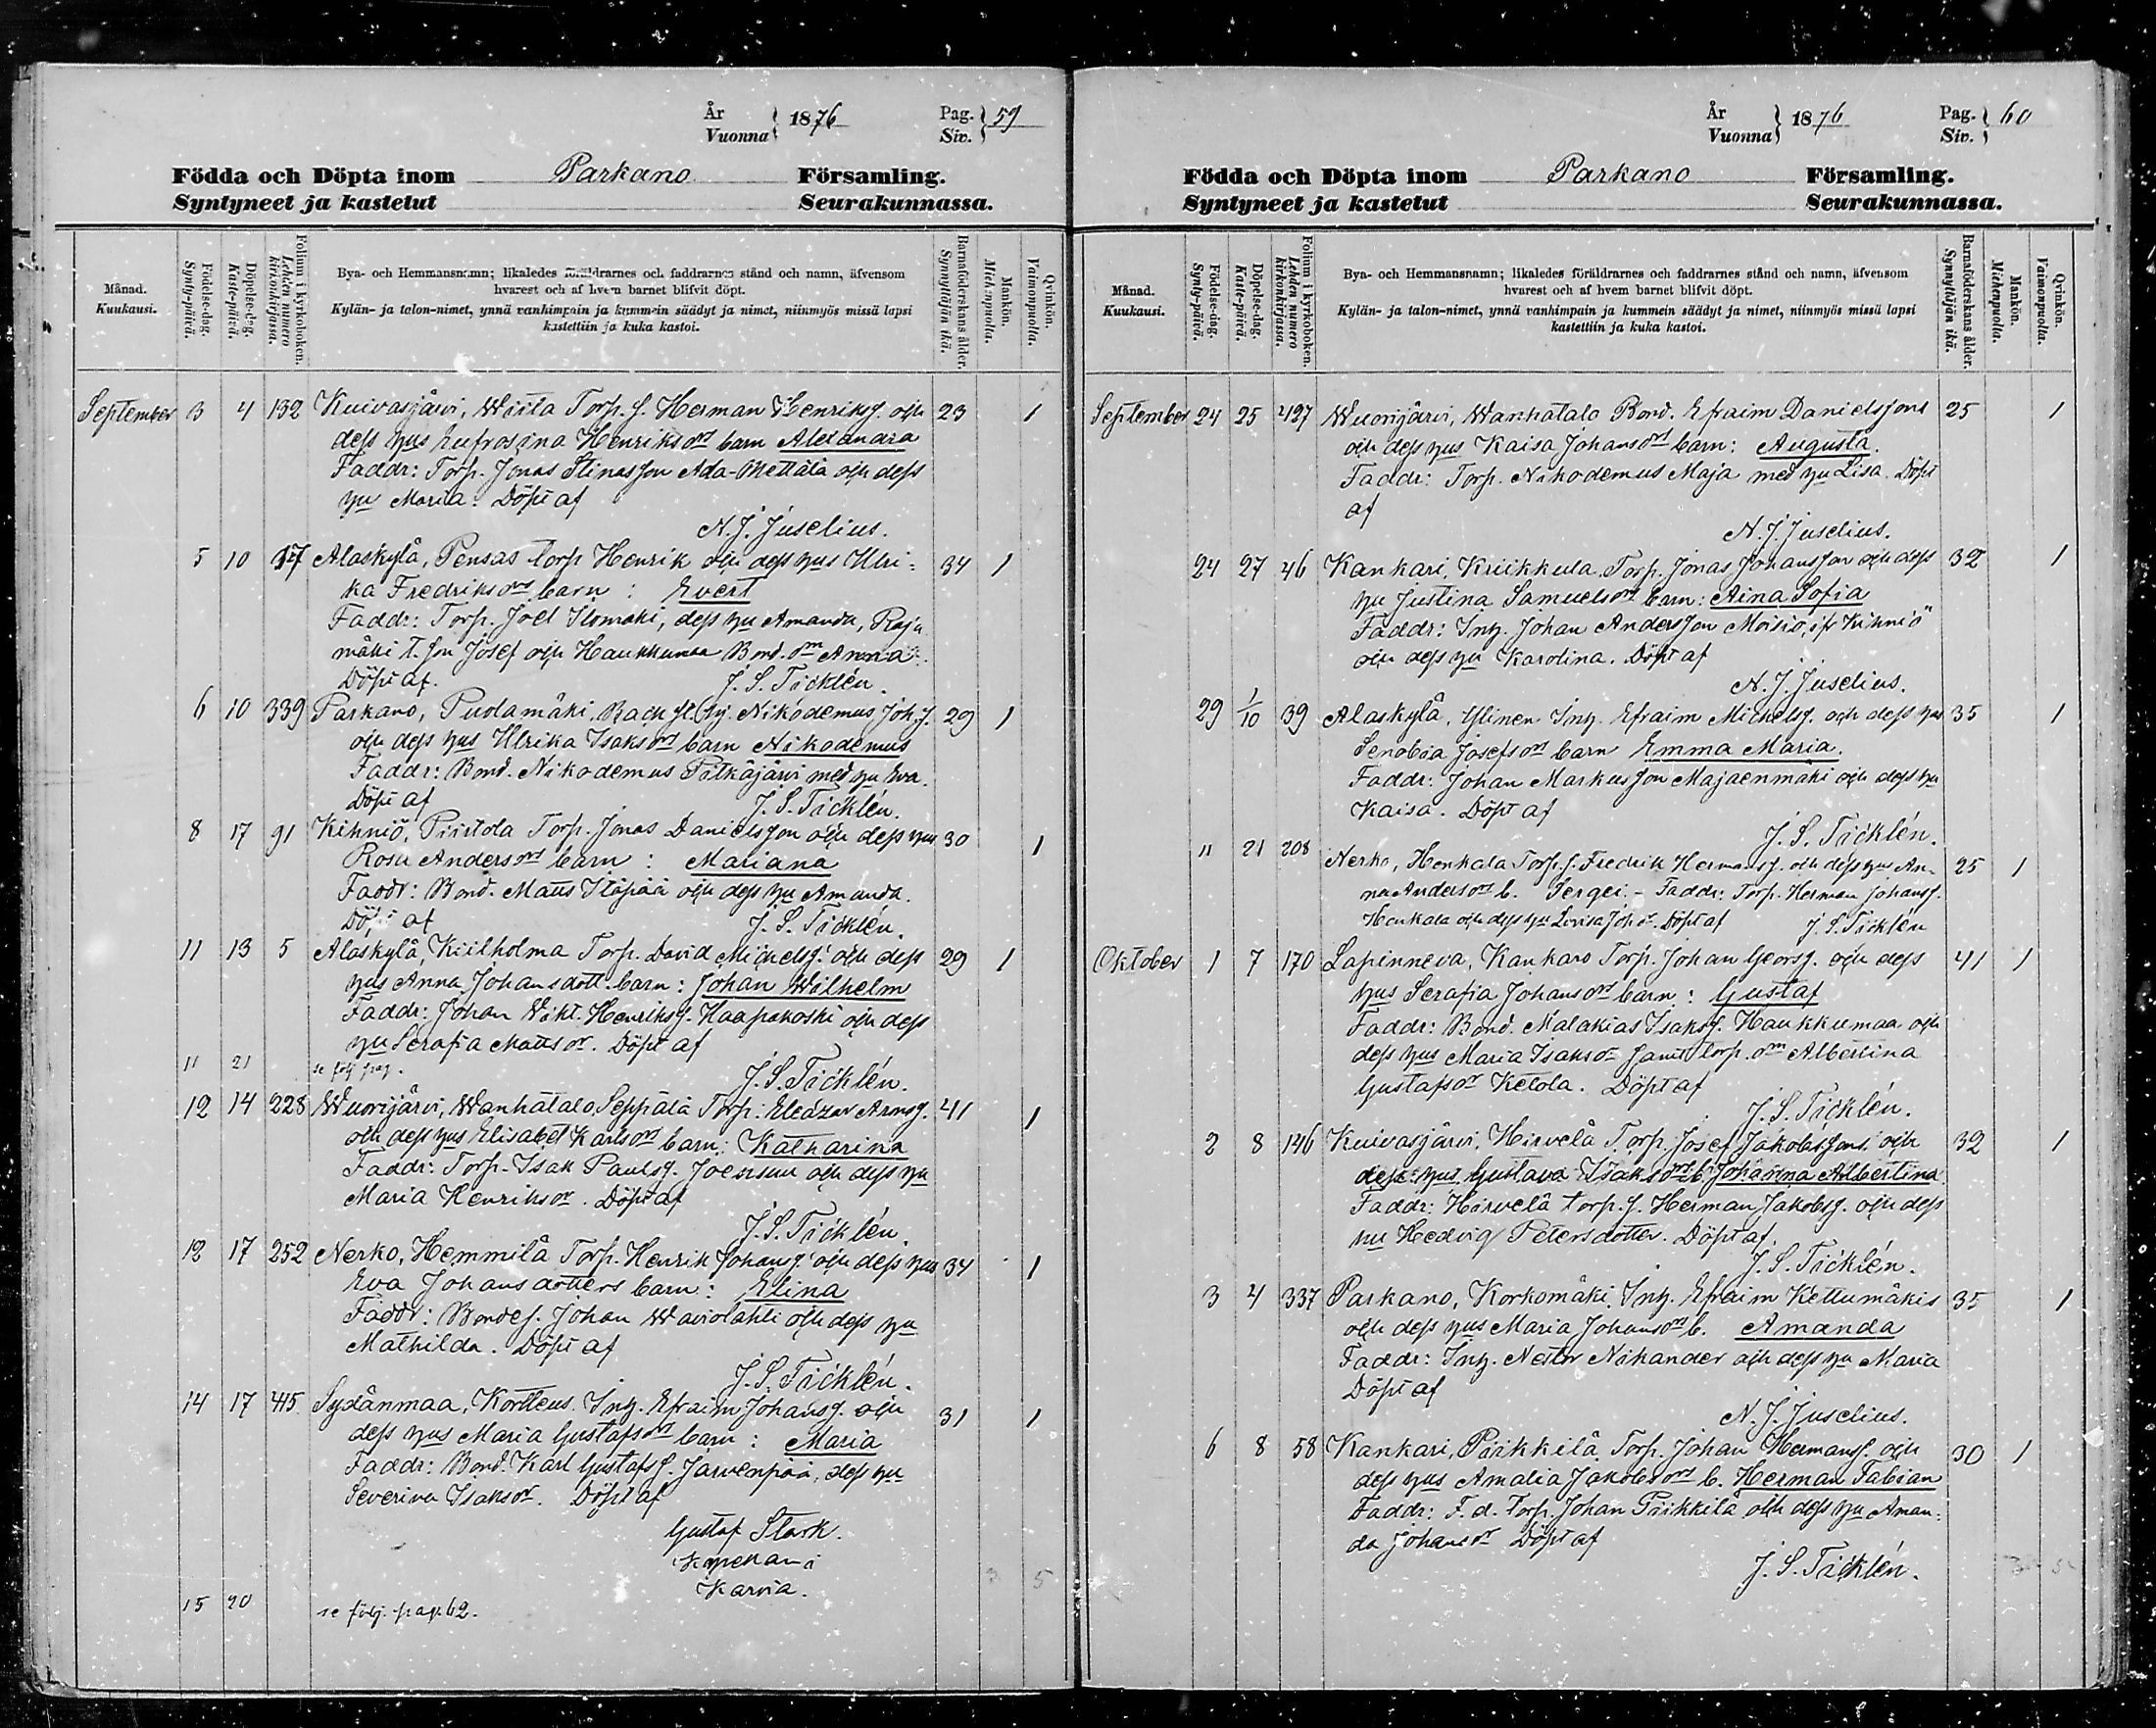 År
Vuonna } 1876
Pag.
Siv. } 59
Födda och Döpta inom Parkano Församling.
Syntyneet ja kastetut Seurakunnassa.
Månad.
Kuukausi.
Födelse-dag.
Synty-päivä.
Döpelse-dag.
Kaste-päivä.
Folium i kyrkoboken.
Lehden numero
kirkonkirjassa.
Bya- och Hemmansnamn; likaledes föräldrarnes och faddrarnes stånd och namn, äfvensom
hvarest och af hvem barnet blifvit döpt.
Kylän- ja talon-nimet, ynnä vanhimpain ja kummein säädyt ja nimet, niinmyös missä lapsi
kastettiin ja kuka kastoi.
Barnaföderskans ålder.
Synnyttäjän ikä.
Mankön.
Miehenpuolta.
Qvinkön.
Vaimonpuolta.
September 3 4 132 Kuivasjärvi, Wiita Torp. s. Herman Henriks. och 23 1
dess hus Eufrosina Henriksdrs barn Alexandra
Faddr: Torp. Jonas Stinasson Ada-Mettälä och dess
hu Maria. Döpt af
N. J. Juselius.
5 10 17 Alaskylä, Pensas torp Henrik och dess hus Ulri= 34 1
ka Fredriksdrs barn: Evert
Faddr: Torp. Joel Ilomäki, dess hu Amanda, Raja
mäki t. son Josef och Haukkumaa Bond. dm Anna.
Döpt af. J. S. Ticklén.
6 10 339 Parkano, Puolamäki, Backst. hj. Nikodemus Joh. s. 29 1
och dess hus Ulrika Isaksdrs barn Nikodemus
Faddr: Bond. Nikodemus Pitkäjärvi med hu Eva.
Döpt af J. S. Ticklén.
8 17 91 Kihniö, Piistola Torp. Jonas Danielsson och dess hus 30 1
Rosa Andersdrs barn: Mariana
Faddr: Bond. Matts Yläpää och dess hu Amanda.
Döpt af J. S. Ticklén.
11 13 5 Alaskylä, Kiilholma Torp. David Michels. och dess 29 1
hus Anna Johansdott. barn: Johan Wilhelm
Faddr: Johan Wikt. Henriks. Haapakoski och dess
hu Serafia Mattsdr. Döpt af
11 21 se följ pag. J. S. Ticklén.
12 14 228 Wuorijärvi, Wanhatalo Seppälä Torp. Eleazar Arons. 41 1
och dess hus Elisabet Karlsdrs barn: Katharina
Faddr: Torp. Isak Pauls. Joensuu och dess hu
Maria Henriksdr. Döpt af
J. S. Ticklén.
12 17 252 Nerko, Hemmilä Torp. Henrik Johans. och dess hus 34 1
Eva Johansdotters barn: Elina
Faddr: Bondes. Johan Waivolahti och dess hu
Mathilda. Döpt af
J. S. Ticklén.
14 17 415 Sydänmaa, Kortteus Inh. Efraim Johans. och 31 1
dess hus Maria Gustafsdrs barn: Maria
Faddr: Bond. Karl Gustafs. Jarvenpää, dess hu
Severina Isaksdr. Döpt af
Gustaf Stark.
Kapellan i
Karvia.
3 5
15 20 se följ. pag. 62.
År
Vuonna } 1876
Pag.
Siv. } 60
Födda och Döpta inom Parkano Församling.
Syntyneet ja kastetut Seurakunnassa.
Månad.
Kuukausi.
Födelse-dag.
Synty-päivä.
Döpelse-dag.
Kaste-päivä.
Folium i kyrkoboken.
Lehden numero
kirkonkirjassa.
Bya- och Hemmansnamn; likaledes föräldrarnes och faddrarnes stånd och namn, äfvensom
hvarest och af hvem barnet blifvit döpt.
Kylän- ja talon-nimet, ynnä vanhimpain ja kummein säädyt ja nimet, niinmyös missä lapsi
kastettiin ja kuka kastoi.
Barnaföderskans ålder.
Synnyttäjän ikä.
Mankön.
Miehenpuolta.
Qvinkön.
Vaimonpuolta.
September 24 25 427 Wuorijärvi, Wanhatalo Bond. Efraim Danielssons 25 1
och dess hus Kaisa Johansdrs barn: Augusta.
Faddr: Torp. Nikodemus Maja med hu Lisa. Döpt
af
N. J. Juselius.
24 27 46 Kankari, Kriikkula Torp. Jonas Johansson och dess 32 1
hu Justina Samuelsdrs barn: Aina Sofia
Faddr: Inh. Johan Andersson Moisio, ifr Kihniö
och dess hu Karolina. Döpt af
N. J. Juselius.
29 1/10 39 Alaskylä, Ylinen Inh. Efraim Michels. och dess hus 35 1
Senobia Josefsdrs barn Emma Maria.
Faddr: Johan Markusson Majaenmäki och dess hu
Kaisa. Döpt af
J. S. Ticklén.
11 21 208 Nerko, Henkala Torp. s. Fredrik Hermans. och dess hus An- 25 1
na Andersdrs b. Sergei. - Faddr: Torp. Herman Johans.
Henkala och dess hu Lovisa Joh d. Döpt af J. S. Ticklén
Oktober 1 7 170 Lapinneva, Kankaro Torp. Johan Georgs. och dess 41 1
hus Serafia Johansdrs barn: Gustaf
Faddr: Bond. Malakias Isaks. Haukkumaa och
dess hus Maria Isaksdr samt torp. dm Albertina
Gustafsdr Ketola. Döpt af
J. S. Ticklén.
2 8 146 Kuivasjärvi, Hirvelä Torp. Josef Jakobssons och 32 1
dess hus Gustava Isaksdrs b. Johanna Albertina
Faddr: Hirvelä torp. s. Herman Jakobs. och dess
hu Hedvig Petersdotter. Döpt af.
J. S. Ticklén.
3 4 337 Parkano, Korkomäki Inh. Efraim Kettumäkis 35 1
och dess hus Maria Johansdrs b. Amanda
Faddr: Inh. Nestor Nikander och dess hu Maria
Döpt af
N. J. Juselius.
6 8 58 Kankari, Päikkilä Torp. Johan Hermans. och 30 1
dess hus Amalia Jakobsdrs b. Herman Fabian
Faddr: F. d. Torp. Johan Päikkilä och dess hu Aman=
da Johansdr Döpt af
J. S. Ticklén.
3 5